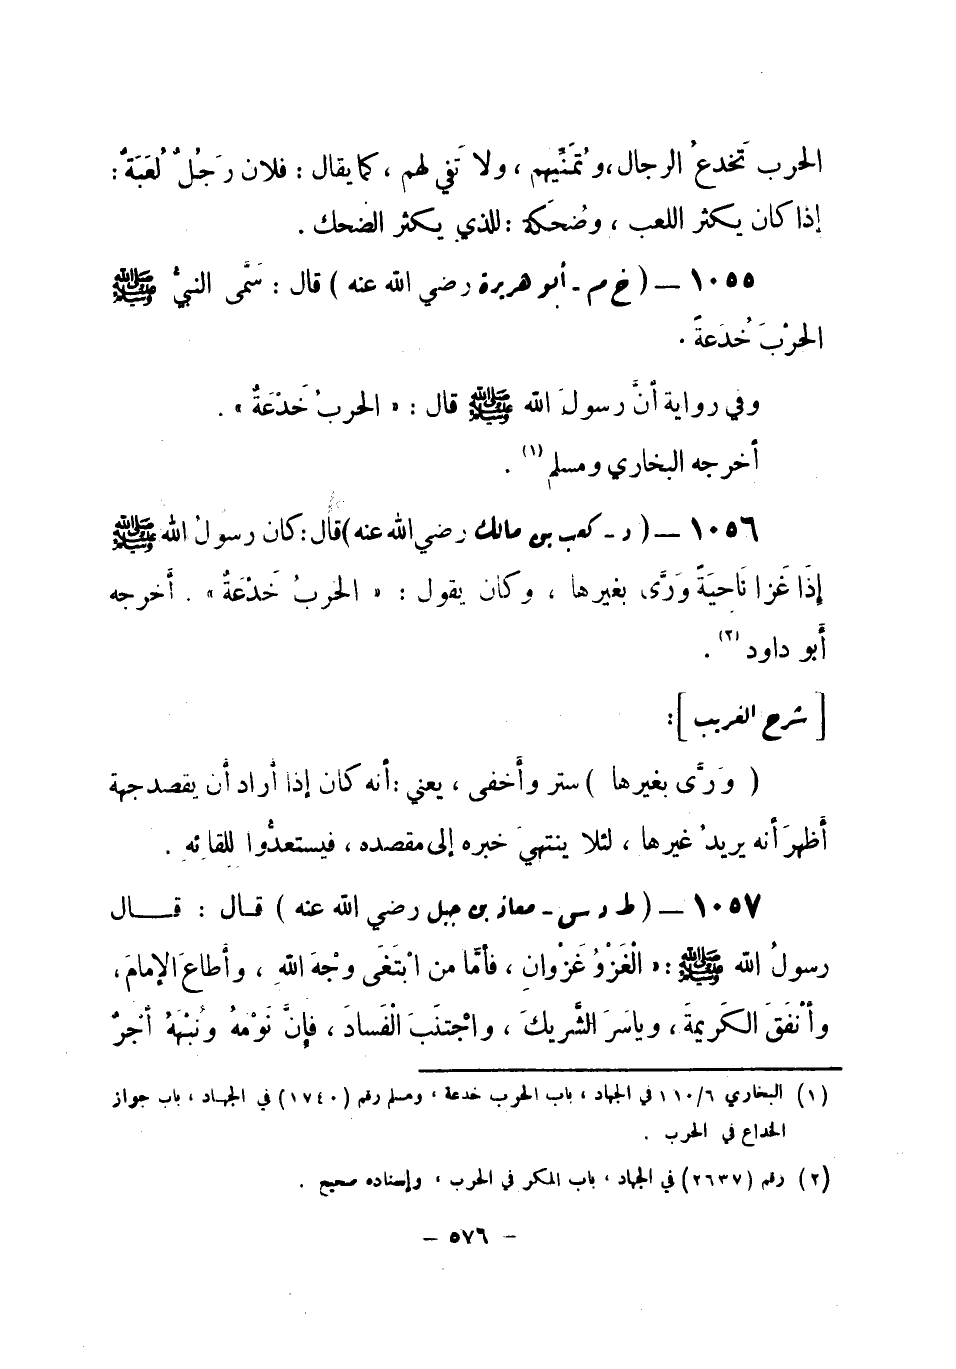 الحرب تَخدعُ الرجال، وتُمَنِّيهم ، ولا تَفي لهم ، كما يقال : فلان رَجُلٌ لُعَبَةٌ :
إذا كان يكثر اللعب ، وضُحَكة : للذي يكثر الضحك .
١٠٥٥ — ( خ م - أبو هريرة رضي الله عنه ) قال : سَمَّى النبيُّ ﷺ
الحرْبَ خُدَعةً .
وفي رواية أنَّ رسولَ الله ﷺ قال : « الحربُ خَدْعَةٌ » .
أخرجه البخاري ومسلم (١) .
١٠٥٦ — ( د - كعب بن مالك رضي الله عنه ) قال : كان رسولُ الله ﷺ
إِذَا غَزا نَاحِيَةً وَرَّى بغيرها ، وكان يقول : « الحَربُ خَدْعَةٌ » . أخرجه
أبو داود (٢) .
[ شرح الغريب ] :
( وَرَّى بغيرها ) ستر وأخفى ، يعني : أنه كان إذا أراد أن يقصد جهة
أظهرَ أنه يريدُ غيرها ، لئلا ينتهيَ خبره إلى مقصده ، فيستعدُّوا للقائهِ .
١٠٥٧ — ( ط د س - معاذ بن جبل رضي الله عنه ) قال : قـــال
رسولُ الله ﷺ : « الْغَزْوُ غَزْوانِ ، فأمَّا من ابْتَغَى وجْهَ اللهِ ، وأطاعَ الإمامَ ،
وأنْفَقَ الكَرِيمةَ ، وياسَرَ الشَّريكَ ، واجْتنَبَ الْفَسادَ ، فإنَّ نَوْمَهُ ونُبْهَهُ أجْرٌ
(١) البخاري ٦/١١٠ في الجهاد ، باب الحرب خدعة ، ومسلم رقم (١٧٤٠) في الجهـاد ، باب جواز
الخداع في الحرب .
(٢) رقم (٢٦٣٧) في الجهاد ، باب المكر في الحرب ، وإسناده صحيح .
- ٥٧٦ -